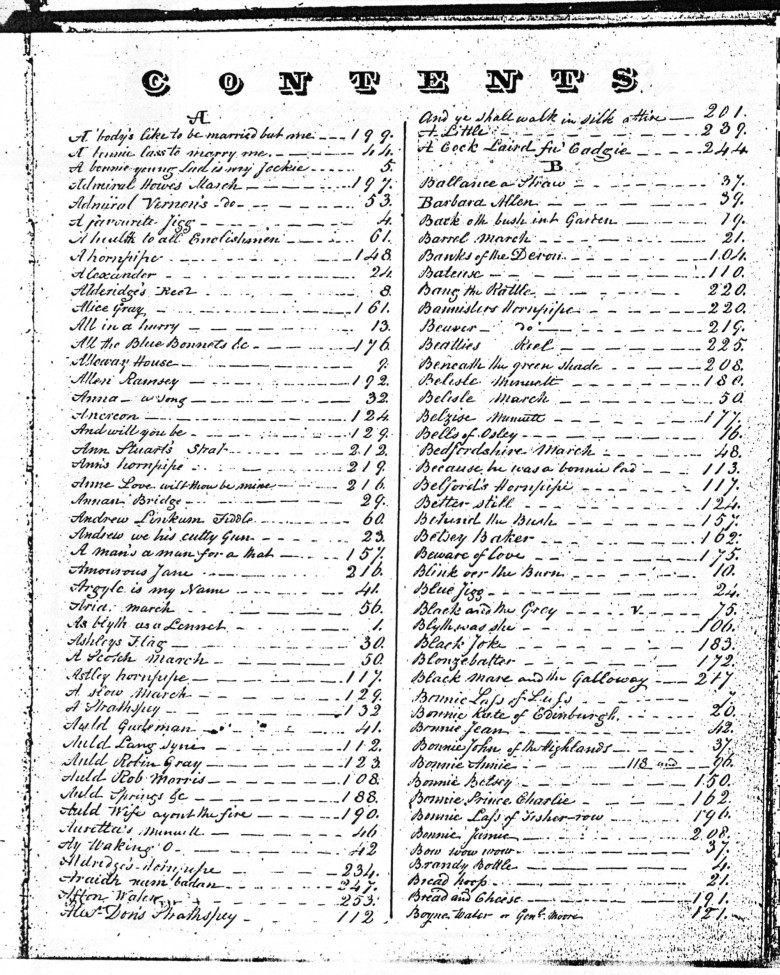 CONTENTS
A
A' body's like to be married but me 199.
A' bonnie lass to marry me 44.
A bonnie young Lad is my Jockie 5.
Admiral Howes March 197.
Admiral Vernon's do 53.
A favourite Jigg 4.
A health to all Englishmen 61.
A hornpipe 148
Alexander 24.
Alderidge's Reel 8.
Alice Gray 161.
All in a hurry 13.
All the Blue Bonnets &c 176
Alloway House 9.
Allen Ramsey 192.
Anna a song 32.
Ancreon 124
And will you be 129.
Ann Stuarts Strat 212.
Ann's hornpipe 219.
Anne Love wilt thou be mine 216.
Annan Bridge 29.
Andrew Linkum Fiddle 60.
Andrew we his cutty Gun 23.
A man's a man for a that 157.
Amourous Jane 216.
Argyle is my Name 41.
Aria march 56.
As blyth as a Lennet 1.
Ashleys Flag 30.
A Scotch March 50.
Astley hornpipe 117.
A slow March 129.
A Strathspey 132
Auld Gudeman 41.
Auld Lang syne 112.
Auld Robin Gray 123
Auld Rob Morris 108.
Auld Springs &c 188.
Auld Wife ayont the fire 190.
Auretta's Minuett 46
Ay Waking O 42
Aldredge's hornpipe 234.
Araidh nam badan 247.
Afton Water 253.
Alexr Dons Strathspey 112
And ye shall walk in silk attire 201.
A Little 239.
A Cock Laird fu' Cadgie 244
B
Ballance a Straw 37.
Barbara Allen 39.
Back oth bush int Garten 19.
Barrel March 21.
Banks of the Devon 104.
Bateuse 110.
Bang the Rattle 220.
Bannisters Hornpipe 220.
Beaver do 219.
Beatties Reel 225
Beneath the green shade 208.
Belisle Minuett 180.
Belisle March 50.
Belzise Minuett 177.
Bells of Osley 16.
Bedfordshire March 48.
Because he was a bonnie lad 113.
Belford's Hornpipe 117.
Better still 124.
Behind the Bush 157.
Betsey Baker 162.
Beware of love 175.
Blink oer the Burn 10.
Blue Jigg 24.
Black and the Grey v. 75.
Blyth was she 106.
Black Joke 183.
Blonzebatter 172.
Black Mare and the Galloway 217
Bonnie Lass of Luss 7.
Bonnie Kate of Edinburgh. 20.
Bonnie Jean 42.
Bonnie John of the Highlands 37.
Bonnie Annie 118 and 96.
Bonnie Betsey 150.
Bonnie Prince Charlie 162.
Bonnie Lass of Fisher-row 196.
Bonnie Jamie 208.
Bow wow wow 37.
Brandy Bottle 4.
Bread hoop 21.
Bread and Cheese 191.
Boyne Water or Genl. Moore 121.